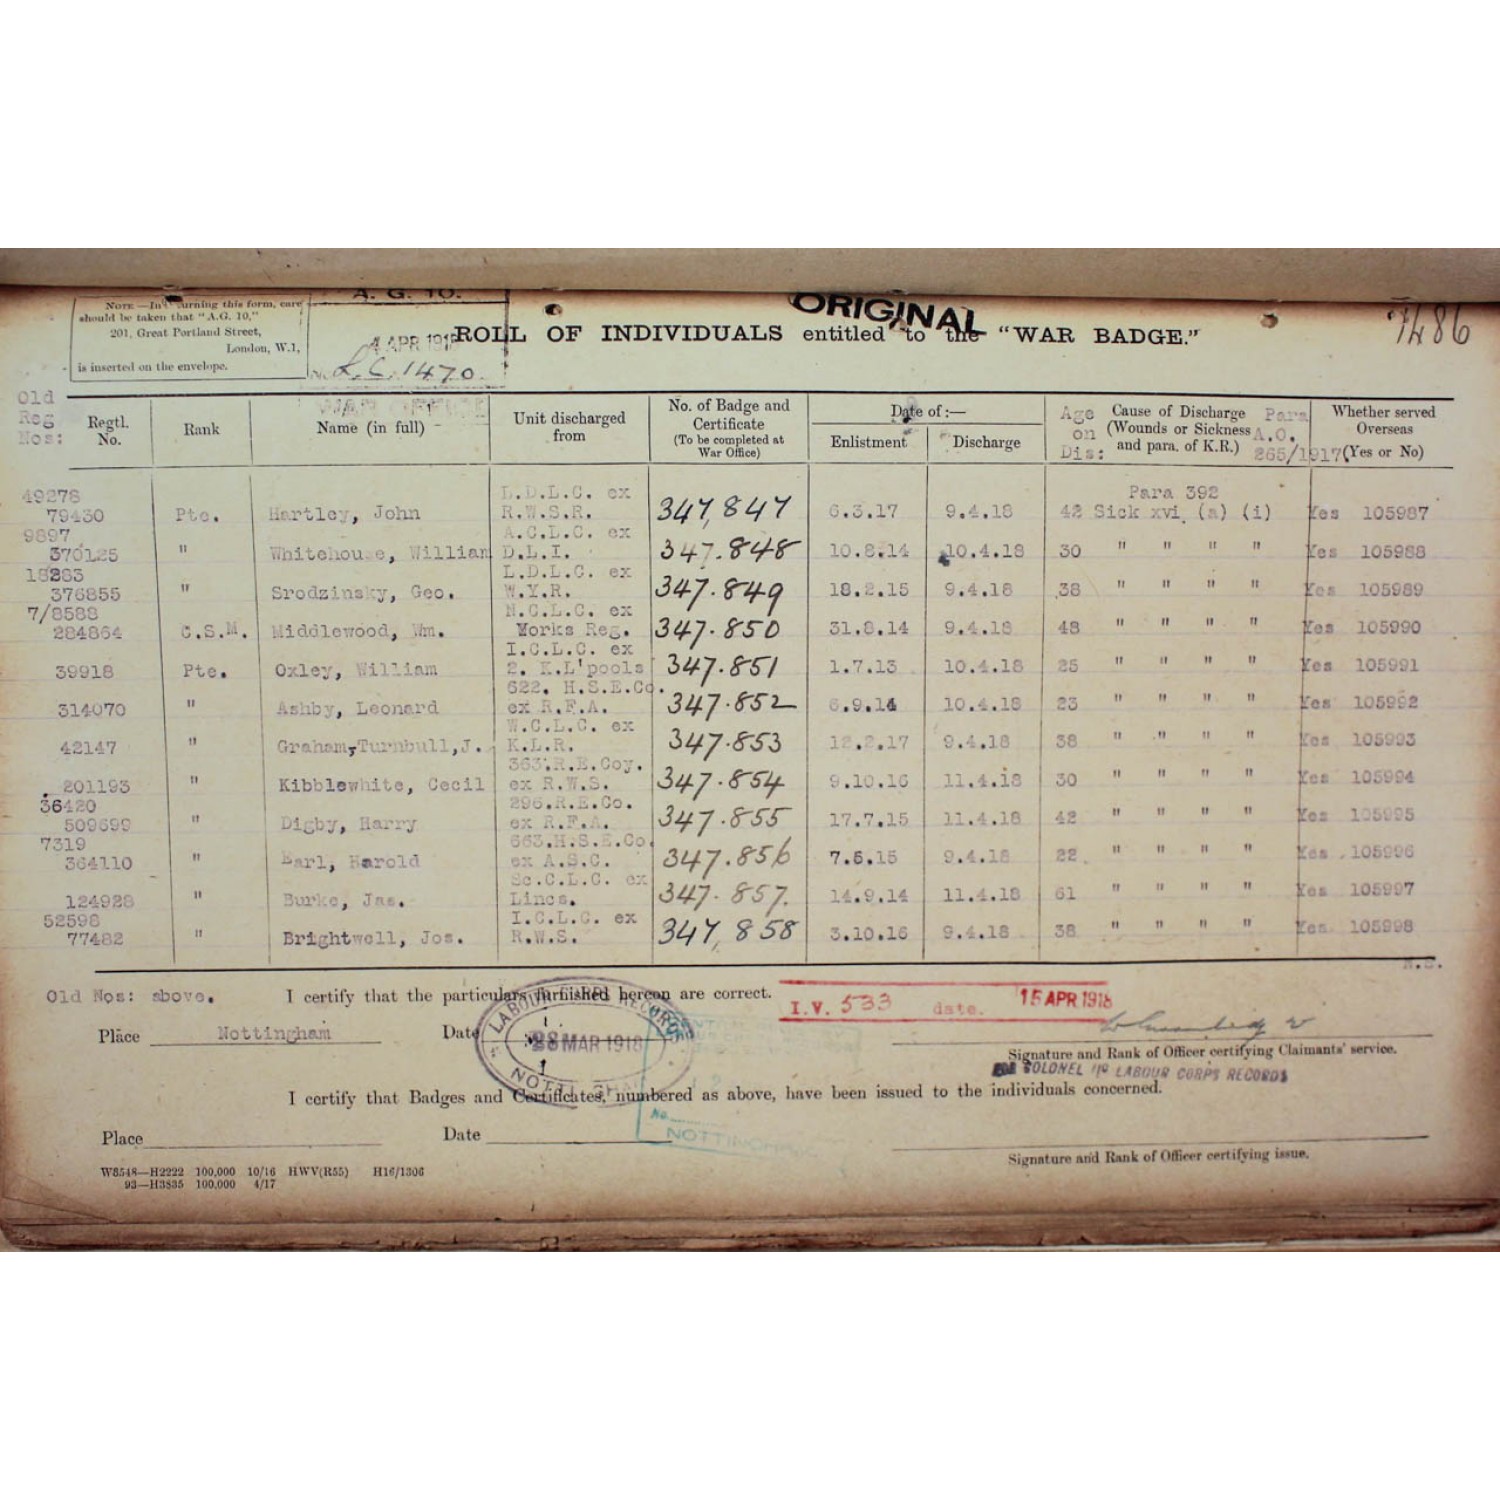 NOTE.—In returning this form, care
should be taken that "A.G. 10,"
201, Great Portland Street,
London, W.1,
is inserted on the envelope.
A. G. 10.
4 APR 1918
L.C. 1470.
WAR OFFICE
ORIGINAL
ROLL OF INDIVIDUALS entitled to the "WAR BADGE."
7486
Old Reg Nos:
Regtl. No.
Rank
Name (in full)
Unit discharged from
No. of Badge and Certificate (To be completed at War Office)
Date of:—
Enlistment
Discharge
Age on Dis:
Cause of Discharge (Wounds or Sickness and para. of K.R.)
Para A.O. 265/1917
Whether served Overseas (Yes or No)
49278 L.D.L.C. ex Para 392
79430 Pte. Hartley, John R.W.S.R. 347,847 6.3.17 9.4.18 42 Sick xvi (a) (i) Yes 105987
9897 A.C.L.C. ex
370125 " Whitehouse, William D.L.I. 347.848 10.8.14 10.4.18 30 " " " " Yes 105988
18283 L.D.L.C. ex
376855 " Srodzinsky, Geo. W.Y.R. 347.849 18.2.15 9.4.18 38 " " " " Yes 105989
7/8588 N.C.L.C. ex
284864 C.S.M. Middlewood, Wm. Yorks Reg. 347.850 31.8.14 9.4.18 48 " " " " Yes 105990
I.C.L.C. ex
39918 Pte. Oxley, William 2. K.L'pools 347.851 1.7.13 10.4.18 25 " " " " Yes 105991
622. H.S.E.Co.
314070 " Ashby, Leonard ex R.F.A. 347.852 6.9.14 10.4.18 23 " " " " Yes 105992
W.C.L.C. ex
42147 " Graham,Turnbull,J. K.L.R. 347.853 12.2.17 9.4.18 38 " " " " Yes 105993
363.R.E.Coy.
201193 " Kibblewhite, Cecil ex R.W.S. 347.854 9.10.16 11.4.18 30 " " " " Yes 105994
36420 296.R.E.Co.
509699 " Digby, Harry ex R.F.A. 347.855 17.7.15 11.4.18 42 " " " " Yes 105995
7319 663.H.S.E.Co.
364110 " Earl, Harold ex A.S.C. 347.856 7.6.15 9.4.18 22 " " " " Yes 105996
Sc.C.L.C. ex
124928 " Burke, Jas. Lincs. 347.857. 14.9.14 11.4.18 61 " " " " Yes 105997
52598 I.C.L.C. ex
77482 " Brightwell, Jos. R.W.S. 347,858 3.10.16 9.4.18 38 " " " " Yes 105998
N.S.
Old Nos: above.
I certify that the particulars furnished hereon are correct.
I.V. 533 date. 15 APR 1918
Place Nottingham
Date
LABOUR CORPS RECORDS
28 MAR 1918
Signature and Rank of Officer certifying Claimants' service.
FOR COLONEL I/C LABOUR CORPS RECORDS
I certify that Badges and Certificates, numbered as above, have been issued to the individuals concerned.
No.
NOTTINGHAM
Place
Date
Signature and Rank of Officer certifying issue.
W8548—H2222 100,000 10/16 HWV(R55) H16/1306
93—H3835 100,000 4/17